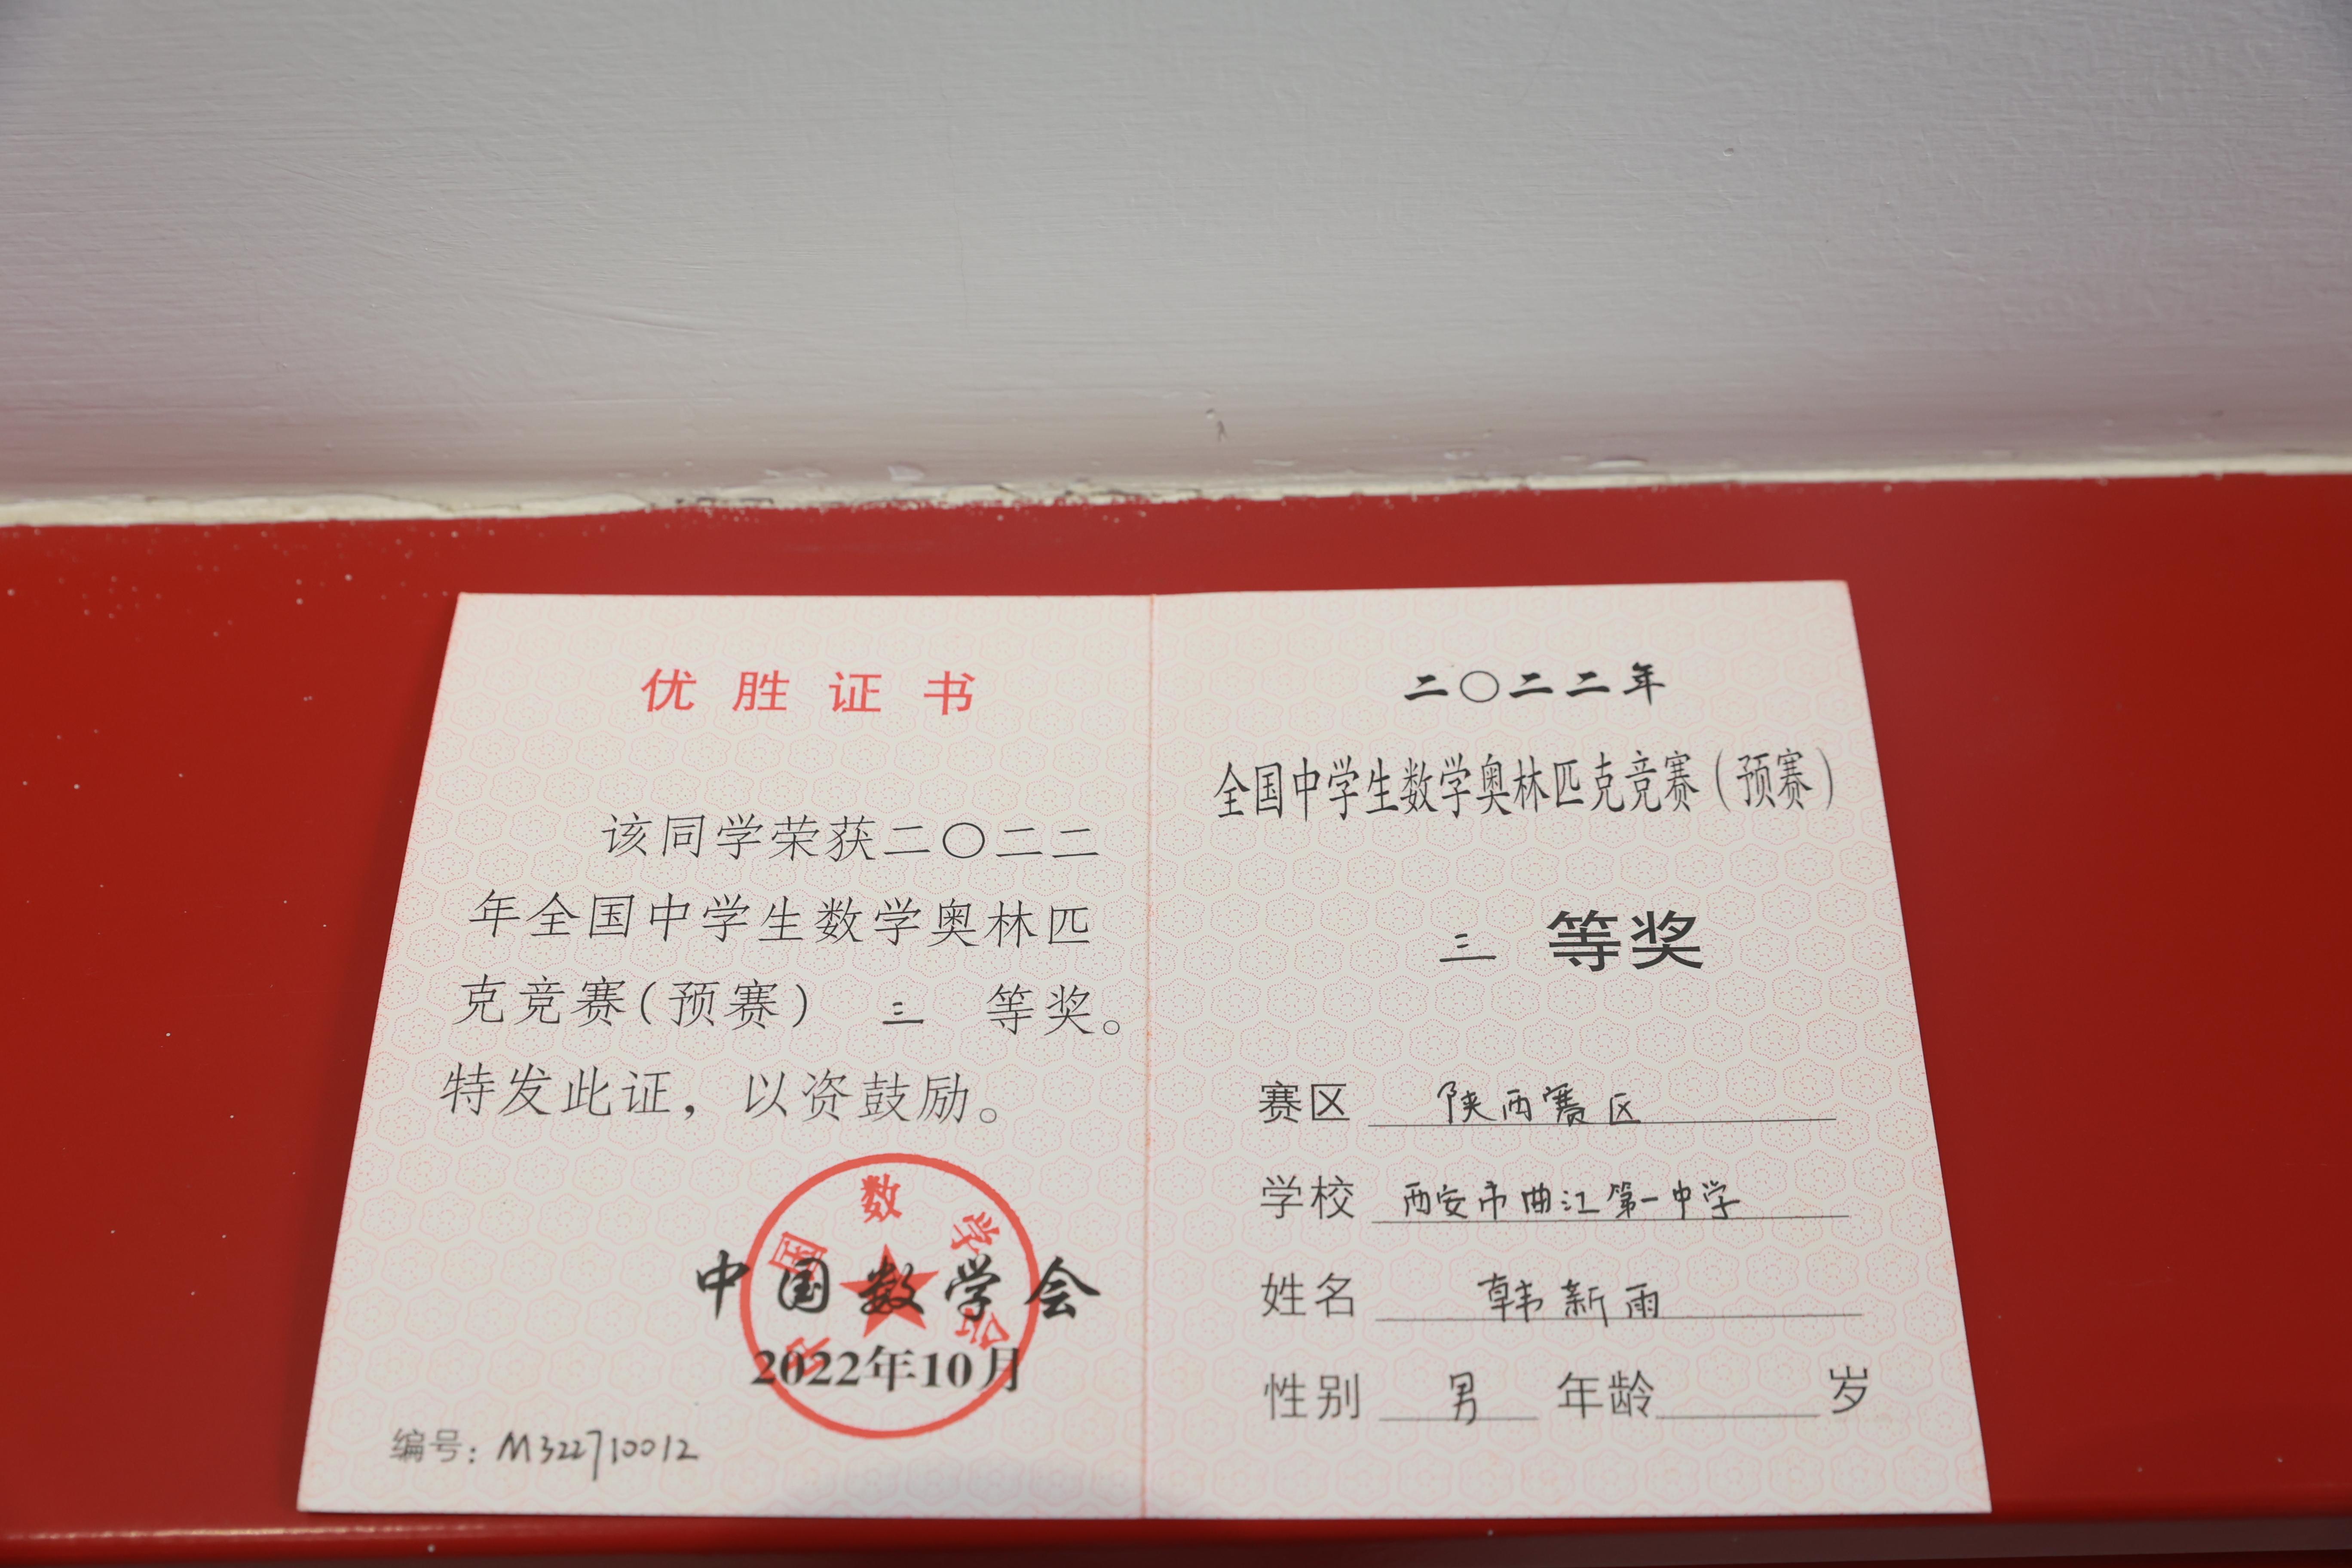 优胜证书
该同学荣获二〇二二
年全国中学生数学奥林匹
克竞赛(预赛) 三 等奖。
特发此证，以资鼓励。
中国数学会
中国数学会
2022年10月
编号：M322710012
二〇二二年
全国中学生数学奥林匹克竞赛(预赛)
三 等奖
赛区 陕西赛区
学校 西安市曲江第一中学
姓名 韩新雨
性别 男 年龄 岁